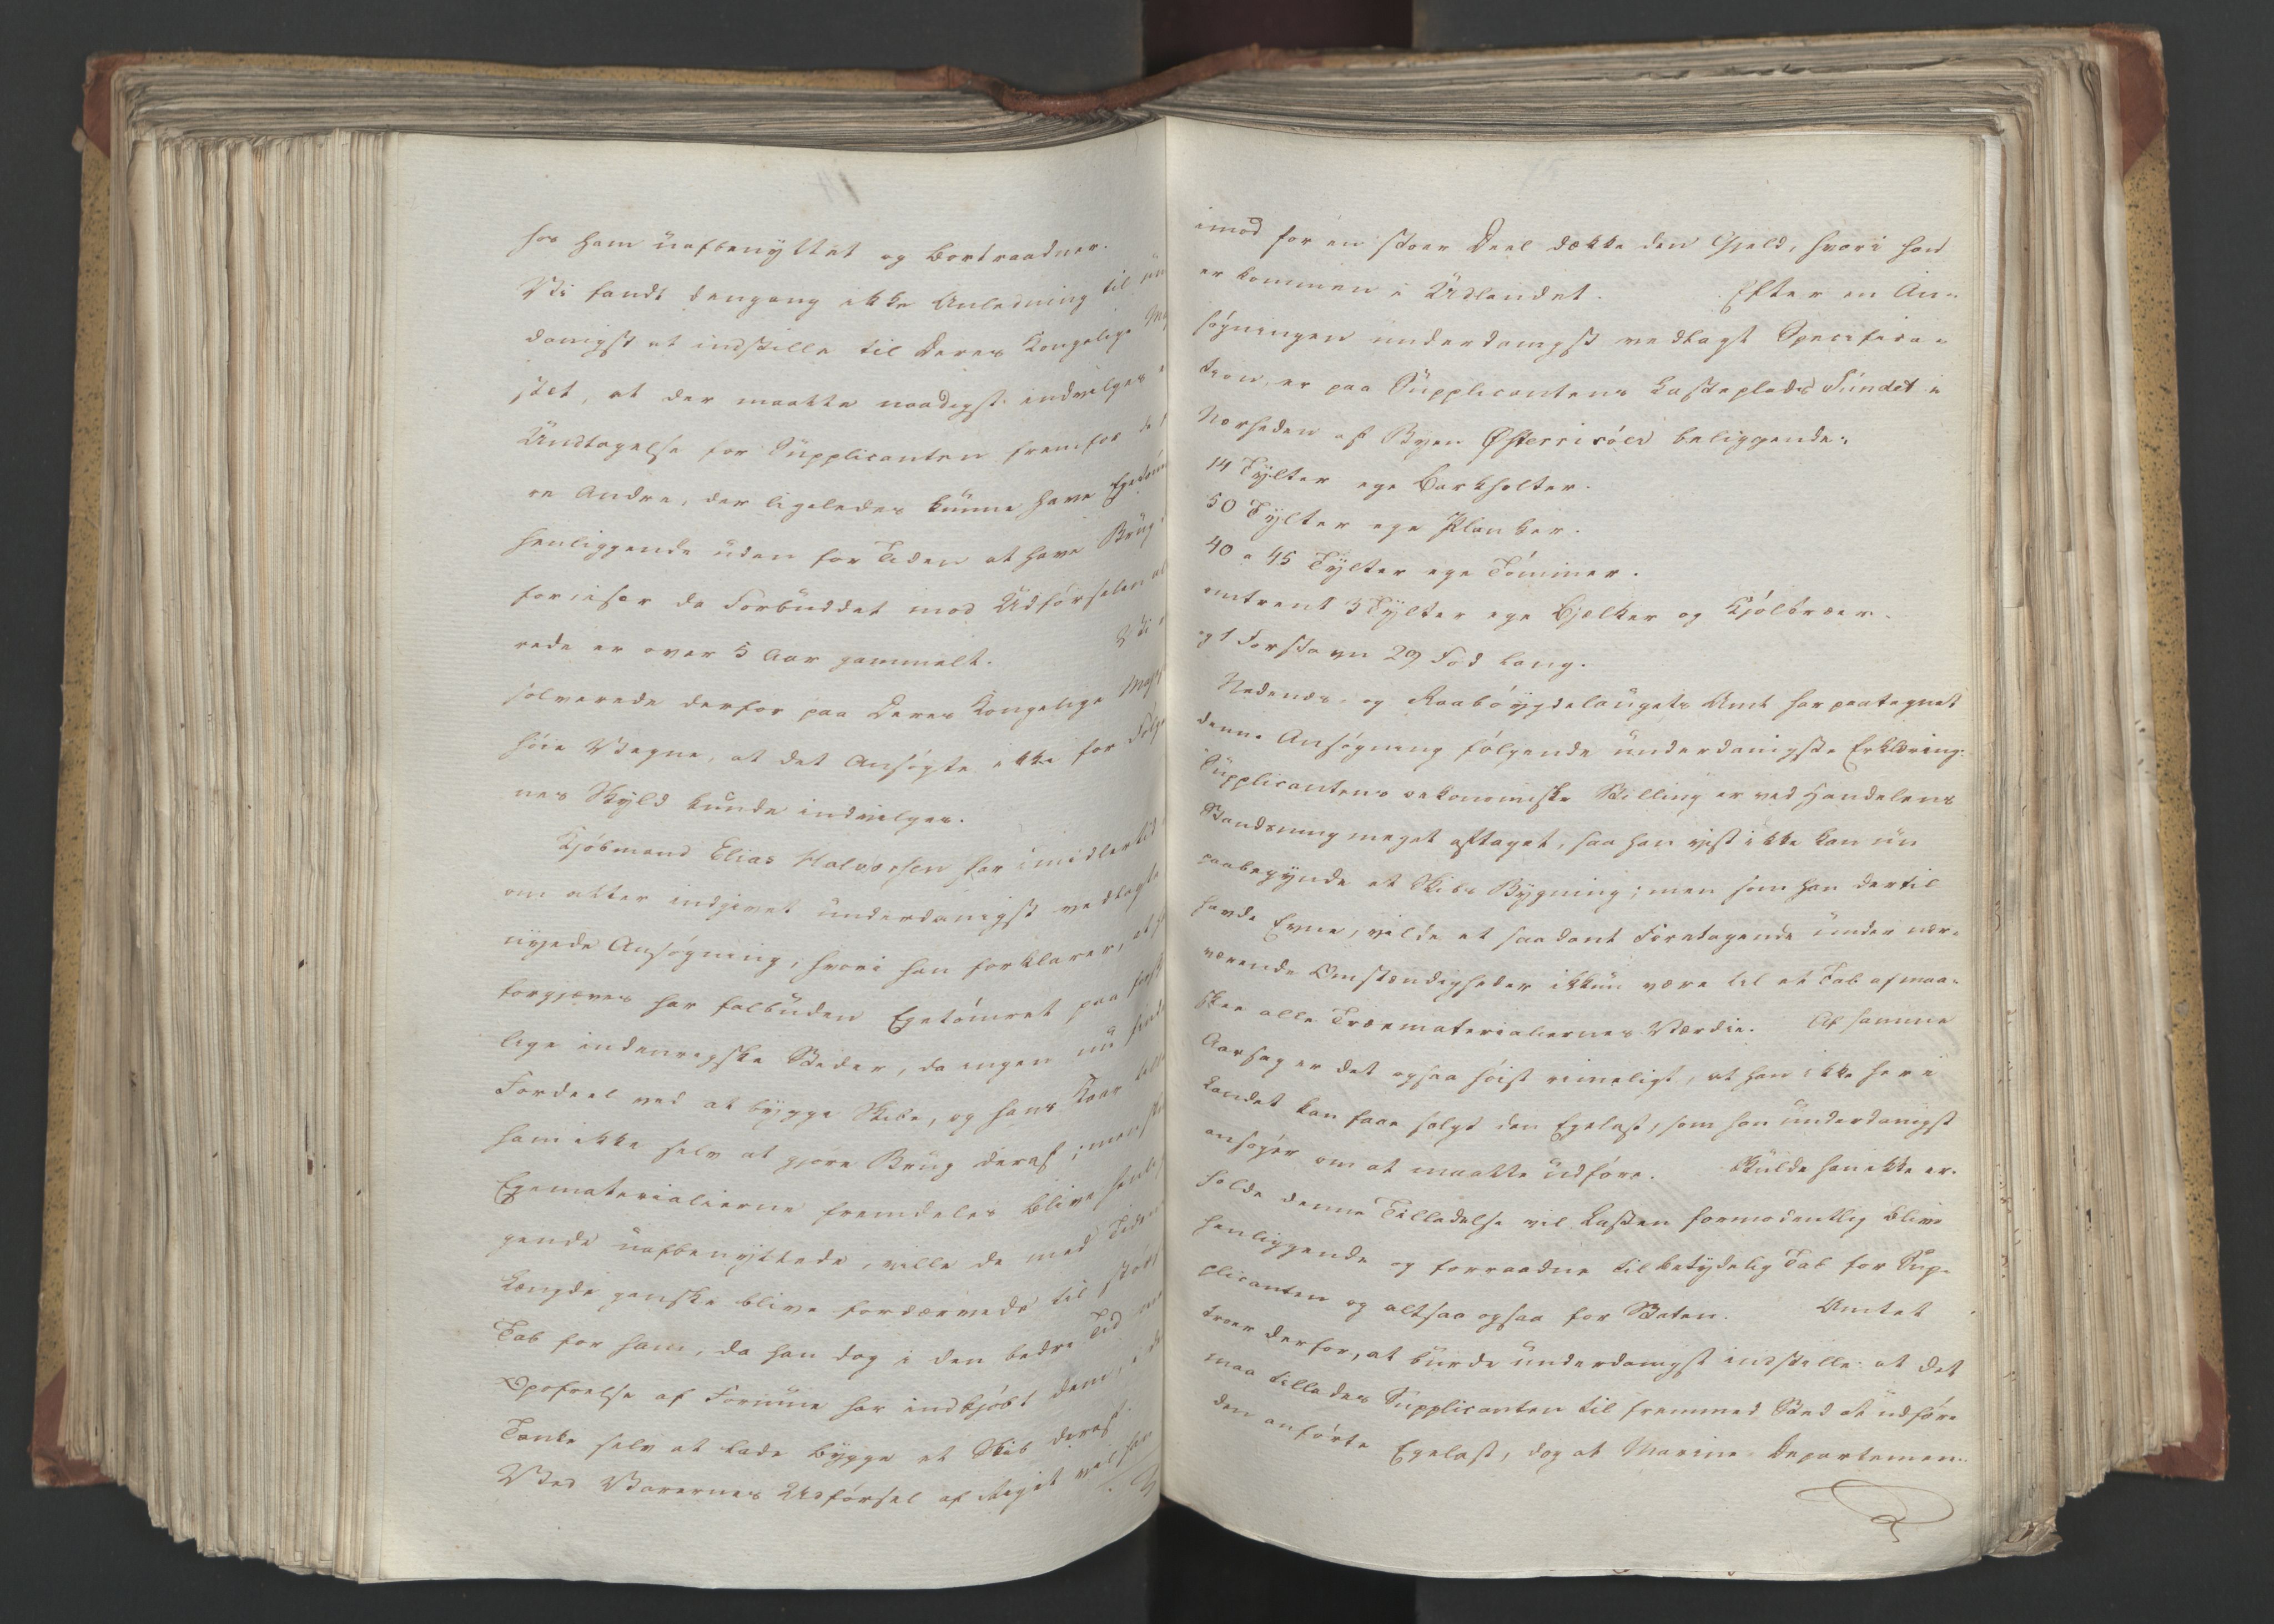 hos ham uafbenyttet og bortraadner.
Vi fandt dengang ikke Anledning til un
danigst at indstille til Deres Kongelige Ma
stet, at der maatte naadigst indvilges
Undtagelse for Supplicanten fremfor
re Andre, der ligeledes kunne have Egetøm
henliggende uden for Tiden at have Brug
for, især da Forbuddet mod Udførselen al
rede er over 5 Aar gammelt. Vi
solverede derfor paa Deres Kongelige Maj
høie Vegne, at det Ansøgte ikke for Følge
nes Skyld kunde indvilges.
Kjøbmand Elias Halvorsen har imidlertid
om atter indgivet underdanigst vedlagte
nyede Ansøgning, hvori han forklarer, at h
forgjæves har falbuden Egetømret paa forsk
lige indenrigske Steder, da ingen nu finde
Fordeel ved at bygge Skibe, og hans Kaar
ham ikke selv at gjøre Brug deraf; men
Egematerialierne fremdeles blive henlig
gende uafbenyttede, ville de med Tiden
Længde ganske blive fordærvede til stor
Tab for ham, da han dog i den bedre Tid
Opofrelse af Formue har indkjøbt dem, i
Tanke selv at lade bygge et Skib deraf.
Ved Varernes Udførsel af Riget vil han
imod for en stoer Deel dække den Gjeld, hvori han
er kommen i Udlandet. Efter en An-
søgningen underdanigst vedlagt Specifica-
tion, er paa Supplicantens Lasteplads Sundet i
Nærheden af Byen Østerrisöer beliggende:
14 Tylter ege Barkholter.
50 Tylter ege Planker.
40 a 45 Tylter ege Tömmer.
omtrent 3 Tylter ege Bjelker og Kjölbræer.
og 1 Forstavn 29 Fod lang.
Nedenæs- og Raabøygdelaugets Amt har paategnet
denne Ansøgning følgende underdanigste Erklæring:
Supplicantens oekonomiske Stilling er ved Handelens
Standsning meget aftaget, saa han vist ikke kan nu
paabegynde et Skibs Bygning; men som han dertil
havde Evne, vilde et saadant Foretagende under nær-
værende Omstændigheder ikkun være til et Tab af maa-
skee alle Træematerialiernes Værdie. Af samme
Aarsag er det ogsaa høist rimeligt, at han ikke her i
Landet kan faae solgt den Egelast, som han underdanigst
ansøger om at maatte udføre. Skulde han ikke er-
holde denne Tilladelse vil Lasten formodentlig blive
henliggende og forraadne til betydelig Tab for Sup-
plicanten og altsaa ogsaa for Staten. Amtet
troer derfor, at burde underdanigst indstille: at det
maa tillades Supplicanten til fremmed Sted at udføre
den anførte Egelast, dog at Marine-Departemen-